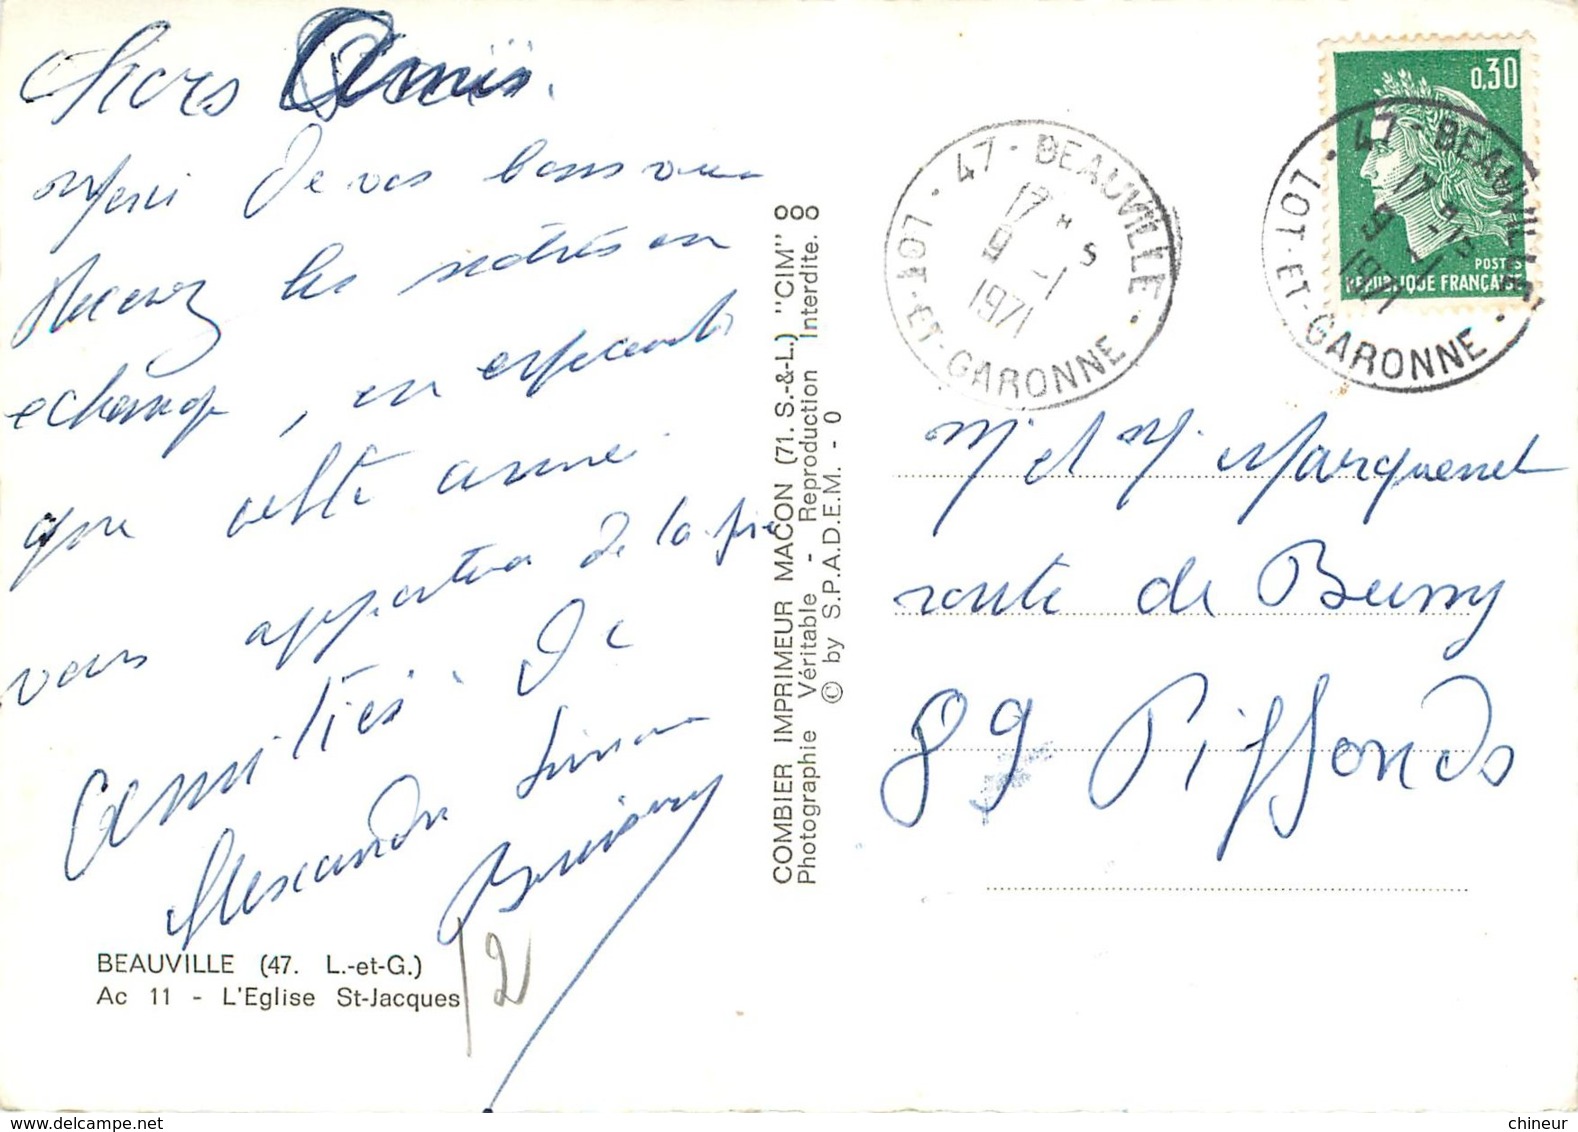 chers Amis.
Merci de vos bons vœux
Recevez les notres en
echange, en esperant
que cette année
vous apportera de la joie
Amitiés. de
Alexandre Simone
BEAUVILLE (47. L.-et-G.)
Ac 11 - L'Eglise St-Jacques
12
COMBIER IMPRIMEUR MACON (71. S.-&-L.) "CIM"
Photographie Véritable - Reproduction Interdite.
© by S.P.A.D.E.M. - 0
47 - BEAUVILLE
17 H
9 -1
1971
LOT-ET-GARONNE
0,30
POSTES
REPUBLIQUE FRANÇAISE
47 - BEAUVILLE
17 H
9 -1
1971
LOT-ET-GARONNE
Mr et Me Marquenet
route de Bussy
89 Piffonds
chineur